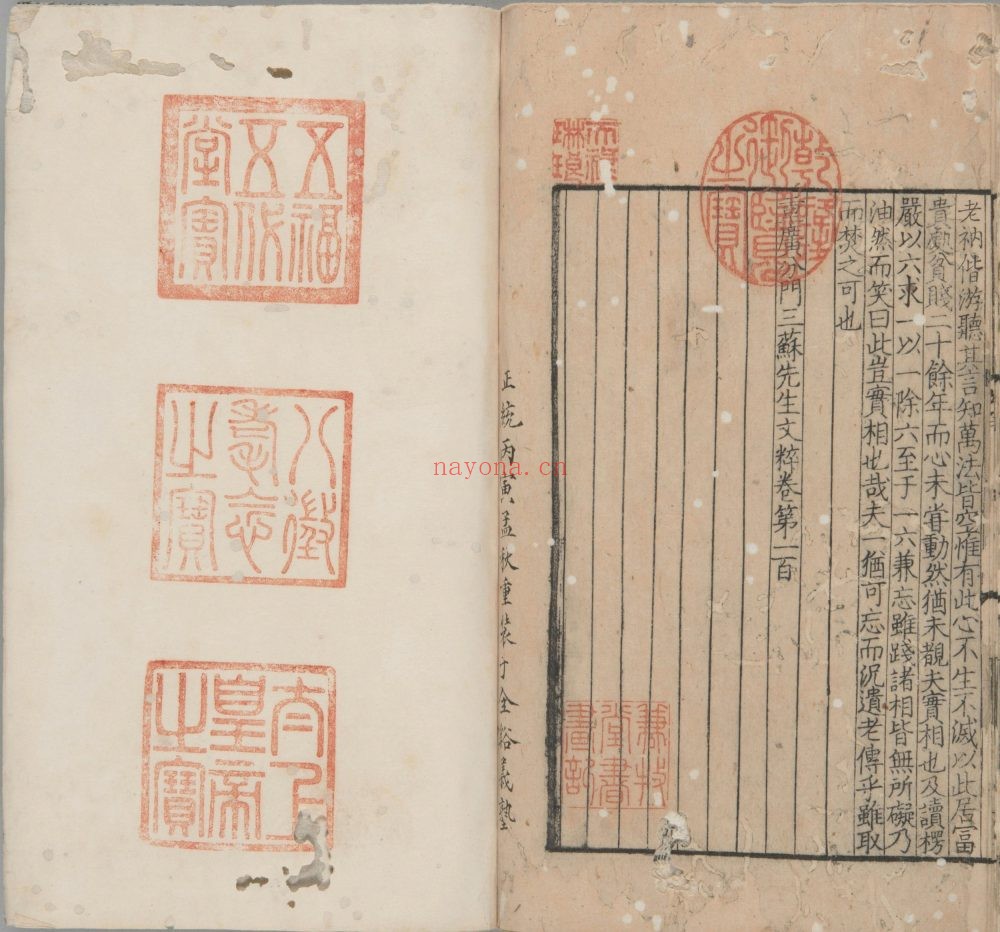 老衲偕游聽其言知萬法皆空惟有此心不生不滅以此居富
貴處貧賤二十餘年而心未甞動然猶未覩夫實相也及讀楞
嚴以六求一以一除六至于一六兼忘雖踐諸相皆無所礙乃
油然而笑曰此豈實相也哉夫一猶可忘而況遺老傳乎雖取
而焚之可也
重廣分門三蘇先生文粹卷第一百
乾隆
御覽
之寶
天祿
琳琅
兼牧
堂書
畫記
正統丙寅孟秋重裝于全裕義塾
五福
五代
堂寶
八徵
耄念
之寶
太上
皇帝
之寶
nayona.cn